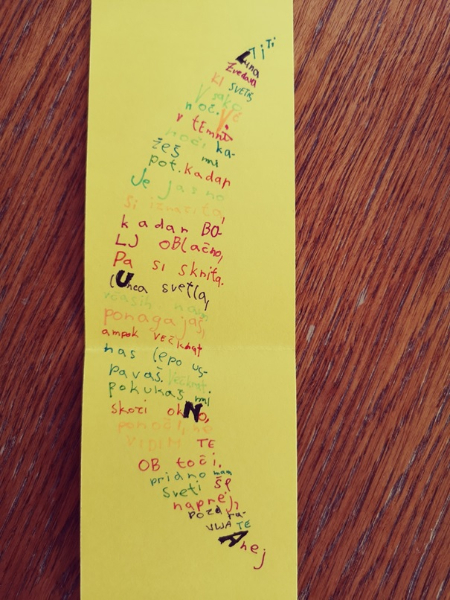 Ti Ti
Luna
Zvedava
ki svetiš
Vsako
noč.
v temni
noči ka-
žeš mi
pot. kadar
je jasno
si izmuzita,
kadar BO-
LJ OBlačno,
Pa si skrita.
lUnca svetla,
nam
ponagajaš,
ampak večkrat
nas lepo us-
pavaš. Večkrat
pokukaš mi
skozi okNo,
ponoči, ko
VIDIM TE
OB toči,
pridno nam
sveti še
naprej,
pozdra-
VLJA TE
Anej